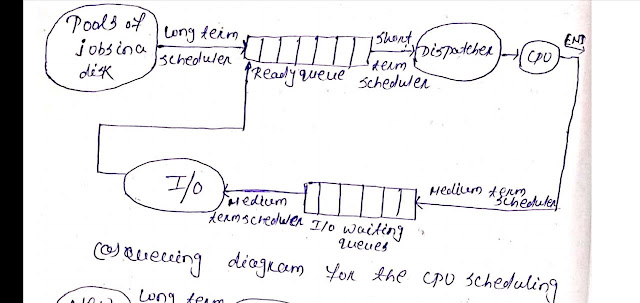 Pools of
jobs in a
disk
Long term
scheduler
Ready queue
Short
term
scheduler
Dispatcher
CPU
END
I/O
Medium
term scheduler
I/O waiting
queues
Medium term
scheduler
(a) Queuing diagram for the CPU scheduling
New
Long term